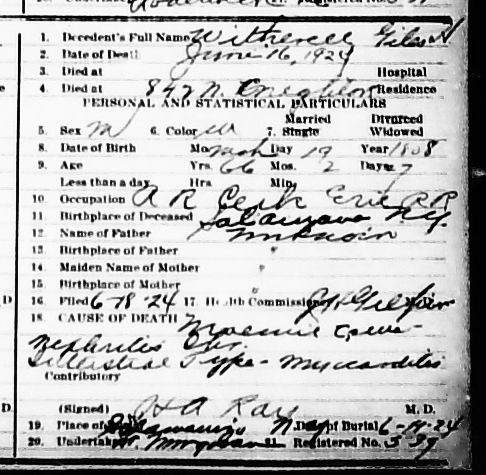 1. Decedent's Full Name Witherell Giles H
2. Date of Death June 16, 1924
3. Died at Hospital
4. Died at 847 N. Residence
PERSONAL AND STATISTICAL PARTICULARS
Married Divorced
5. Sex M 6. Color W 7. Single Widowed
8. Date of Birth Mo. Mch Day 19 Year 1858
9. Age Yrs. 66 Mos. 2 Days 27
Less than a day Hrs Min.
10. Occupation R R Clerk Erie RR
11. Birthplace of Deceased Salamanca N.Y.
12. Name of Father Unknown
13. Birthplace of Father "
14. Maiden Name of Mother "
15. Birthplace of Mother "
16. Filed 6-18-24 17. Health Commissioner
18. CAUSE OF DEATH Uraemic Coma-
Nephritis Chr.
Interstitial Type- Myocarditis
Contributory
(Signed) H A Ray M. D.
19. Place of Salamanca N.Y. Date of Burial 6-19-24
20. Undertaker 21. Registered No. 539